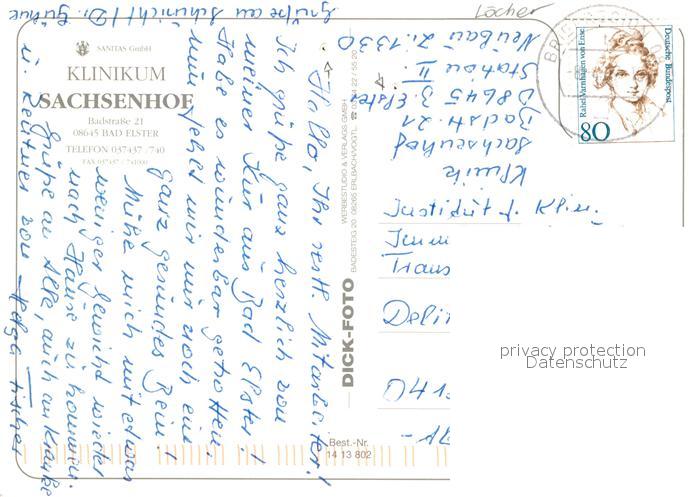 Löcher
SANITAS GmbH
KLINIKUM
SACHSENHOF
Badstraße 21
08645 BAD ELSTER
TELEFON 037437 / 740
Hallo, Ihr restl. Mitarbeiter!
Ich grüße ganz herzlich von
meiner Kur aus Bad Elster!
Habe es wunderbar getroffen.
nun fehlt mir nur noch ein
ganz gesundes Bein!
Mühe mich mit etwas
weniger Gewicht wieder
nach Hause zu kommen.
Grüße an Alle, auch an
von Helga Fischer
Grüße an
DICK-FOTO
WERBESTUDIO & VERLAGS-GMBH
BADESTEIG 20 08265 ERLBACH/VOGTL.
Best.-Nr.
14 13 802
Klinik
Sachsenhof
Badstr. 21
D 8645 B. Elster
Station II
Neubau Z. 1330
Institut f. Klin.
Imm
Trans
Deli
041
Rahel Varnhagen von Ense
Deutsche Bundespost
80
privacy protection
Datenschutz